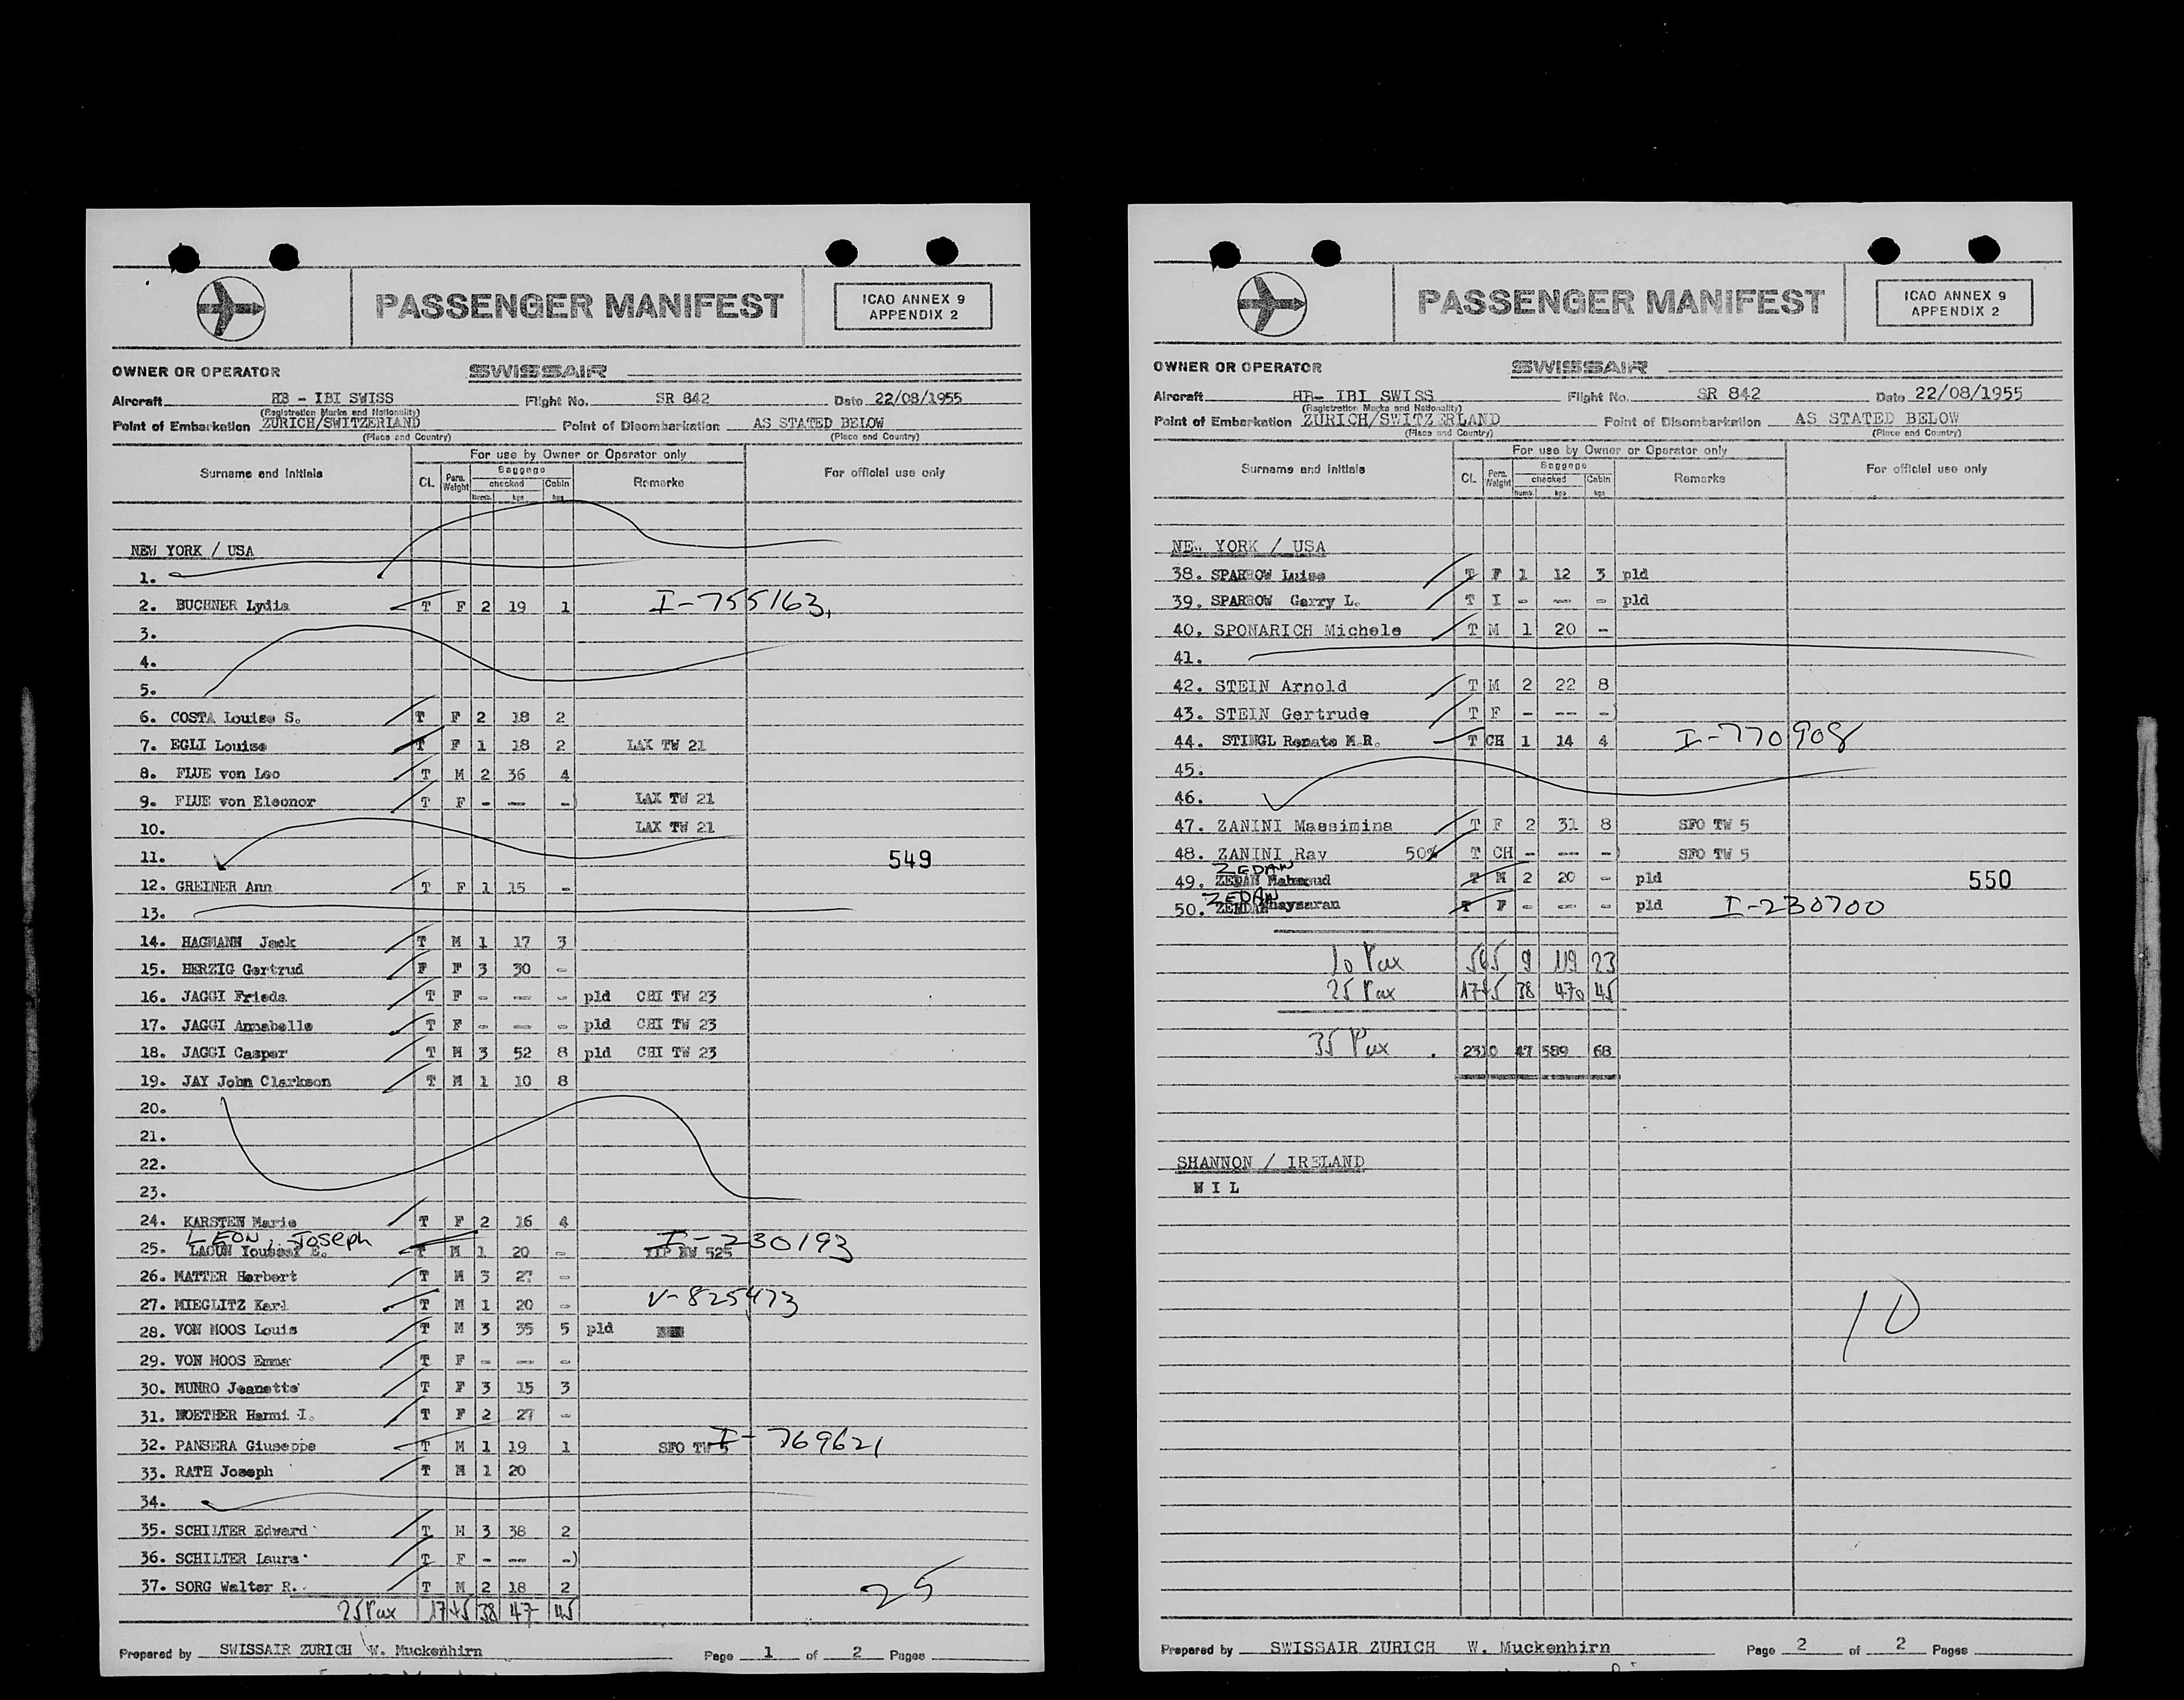 PASSENGER MANIFEST
ICAO ANNEX 9
APPENDIX 2
OWNER OR OPERATOR SWISSAIR
Aircraft HB - IBI SWISS Flight No. SR 842 Date 22/08/1955
(Registration Marks and Nationality)
Point of Embarkation ZURICH/SWITZERLAND Point of Disembarkation AS STATED BELOW
(Place and Country) (Place and Country)
For use by Owner or Operator only
Surname and Initials Cl. Pers. Weight Baggage checked Cabin Remarks For official use only
Numb. kgs kgs
NEW YORK / USA
1.
2. BUCHNER Lydia T F 2 19 1 I-755163,
3.
4.
5.
6. COSTA Louise S. T F 2 18 2
7. EGLI Louise T F 1 18 2 LAX TW 21
8. FLUE von Leo T M 2 36 4
9. FLUE von Eleonor T F - --- -) LAX TW 21
10. LAX TW 21
11. 549
12. GREINER Ann T F 1 15 -
13.
14. HAGMANN Jack T M 1 17 3
15. HERZIG Gertrud F F 3 30 -
16. JAGGI Frieda T F - --- - pld CHI TW 23
17. JAGGI Annabelle T F - --- - pld CHI TW 23
18. JAGGI Casper T M 3 52 8 pld CHI TW 23
19. JAY John Clarkson T M 1 10 8
20.
21.
22.
23.
24. KARSTEN Marie T F 2 16 4
LEON, Joseph I-230193
25. LAOUN Youssef E. T M 1 20 - NW 525
26. MATTER Herbert T M 3 27 -
27. MIEGLITZ Karl T M 1 20 - V-825473
28. VON MOOS Louis T M 3 35 5 pld
29. VON MOOS Emma T F - --- -
30. MUNRO Jeanette T F 3 15 3
31. NOETHER Hermi I. T F 2 27 -
32. PANSERA Giuseppe T M 1 19 1 SFO TW 5 I-769621
33. RATH Joseph T M 1 20
34.
35. SCHILTER Edward T M 3 38 2
36. SCHILTER Laura T F - --- -)
37. SORG Walter R. T M 2 18 2
25
25 Pax 1745 38 47 45
Prepared by SWISSAIR ZURICH W. Muckenhirn Page 1 of 2 Pages
PASSENGER MANIFEST
ICAO ANNEX 9
APPENDIX 2
OWNER OR OPERATOR SWISSAIR
Aircraft HB- IBI SWISS Flight No. SR 842 Date 22/08/1955
(Registration Marks and Nationality)
Point of Embarkation ZURICH/SWITZERLAND Point of Disembarkation AS STATED BELOW
(Place and Country) (Place and Country)
For use by Owner or Operator only
Surname and Initials Cl. Pers. Weight Baggage checked Cabin Remarks For official use only
Numb. kgs kgs
NEW YORK / USA
38. SPARROW Luise T F 1 12 3 pld
39. SPARROW Garry L. T I - --- - pld
40. SPONARICH Michele T M 1 20 -
41.
42. STEIN Arnold T M 2 22 8
43. STEIN Gertrude T F - --- -)
44. STINGL Renate M.R. T CH 1 14 4 I-770908
45.
46.
47. ZANINI Massimina T F 2 31 8 SFO TW 5
48. ZANINI Ray 50% T CH - --- -) SFO TW 5
ZEDAN
49. ZEDAN Mahmoud T M 2 20 - pld 550
ZEDAN
50. Khaysaran T F - --- - pld I-230700
10 Pax 565 9 119 23
25 Pax 1745 38 470 45
35 Pax . 2310 47 589 68
SHANNON / IRELAND
N I L
10
Prepared by SWISSAIR ZURICH W. Muckenhirn Page 2 of 2 Pages